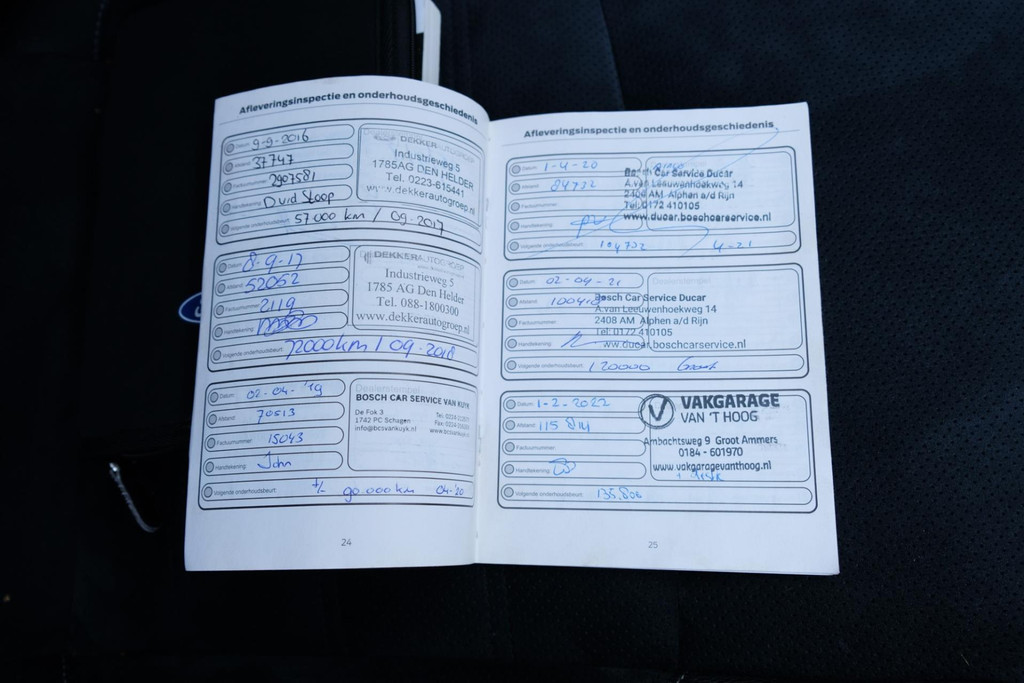 Afleveringsinspectie en onderhoudsgeschiedenis
Datum: 9-9-2016
Afstand: 37747
Factuurnummer: 2907581
Handtekening: David Stoop
Volgende onderhoudsbeurt: 57.000 km / 09-2017
DEKKERAUTOGROEP
Industrieweg 5
1785AG DEN HELDER
Tel. 0223-615441
www.dekkerautogroep.nl
Datum: 8-9-17
Afstand: 52052
Factuurnummer: 2119
Handtekening:
Volgende onderhoudsbeurt: 72000km / 09-2018
DEKKERAUTOGROEP
Industrieweg 5
1785 AG Den Helder
Tel. 088-1800300
www.dekkerautogroep.nl
Datum: 02-04-'19
Afstand: 70513
Factuurnummer: 15043
Handtekening: John
Volgende onderhoudsbeurt: +/- 90.000km 04-'20
Dealerstempel
BOSCH CAR SERVICE VAN KUYK
De Fok 3
1742 PC Schagen
info@bcsvankuyk.nl
www.bcsvankuyk.nl
24
Afleveringsinspectie en onderhoudsgeschiedenis
Datum: 1-4-20
Afstand: 84732
Factuurnummer:
Handtekening:
Volgende onderhoudsbeurt: 104732 4-21
Bosch Car Service Ducar
A.van Leeuwenhoekweg 14
2408 AM Alphen a/d Rijn
Tel: 0172 410105
www.ducar.boschcarservice.nl
Datum: 02-04-21
Afstand: 100418
Factuurnummer:
Handtekening:
Volgende onderhoudsbeurt: 120000 Groot
Bosch Car Service Ducar
A.van Leeuwenhoekweg 14
2408 AM Alphen a/d Rijn
Tel: 0172 410105
www.ducar.boschcarservice.nl
Datum: 1-2-2022
Afstand: 115 814
Factuurnummer:
Handtekening:
Volgende onderhoudsbeurt: 135.806
VAKGARAGE
VAN 'T HOOG
Ambachtsweg 9 Groot Ammers
0184 - 601970
www.vakgaragevanthoog.nl
25